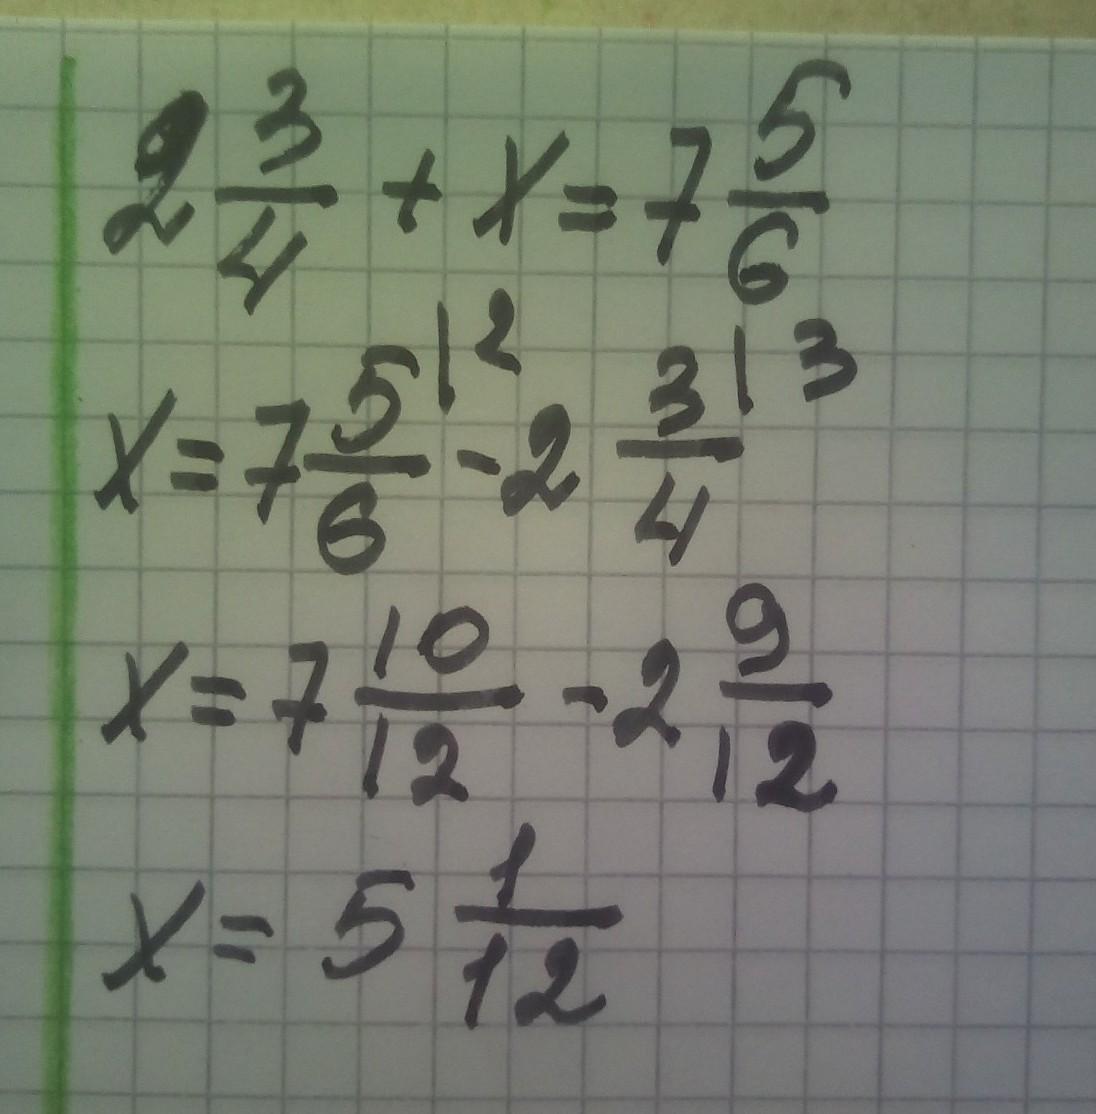 2 3/4 + x = 7 5/6
x = 7 5/6 |2 - 2 3/4 |3
x = 7 10/12 - 2 9/12
x = 5 1/12